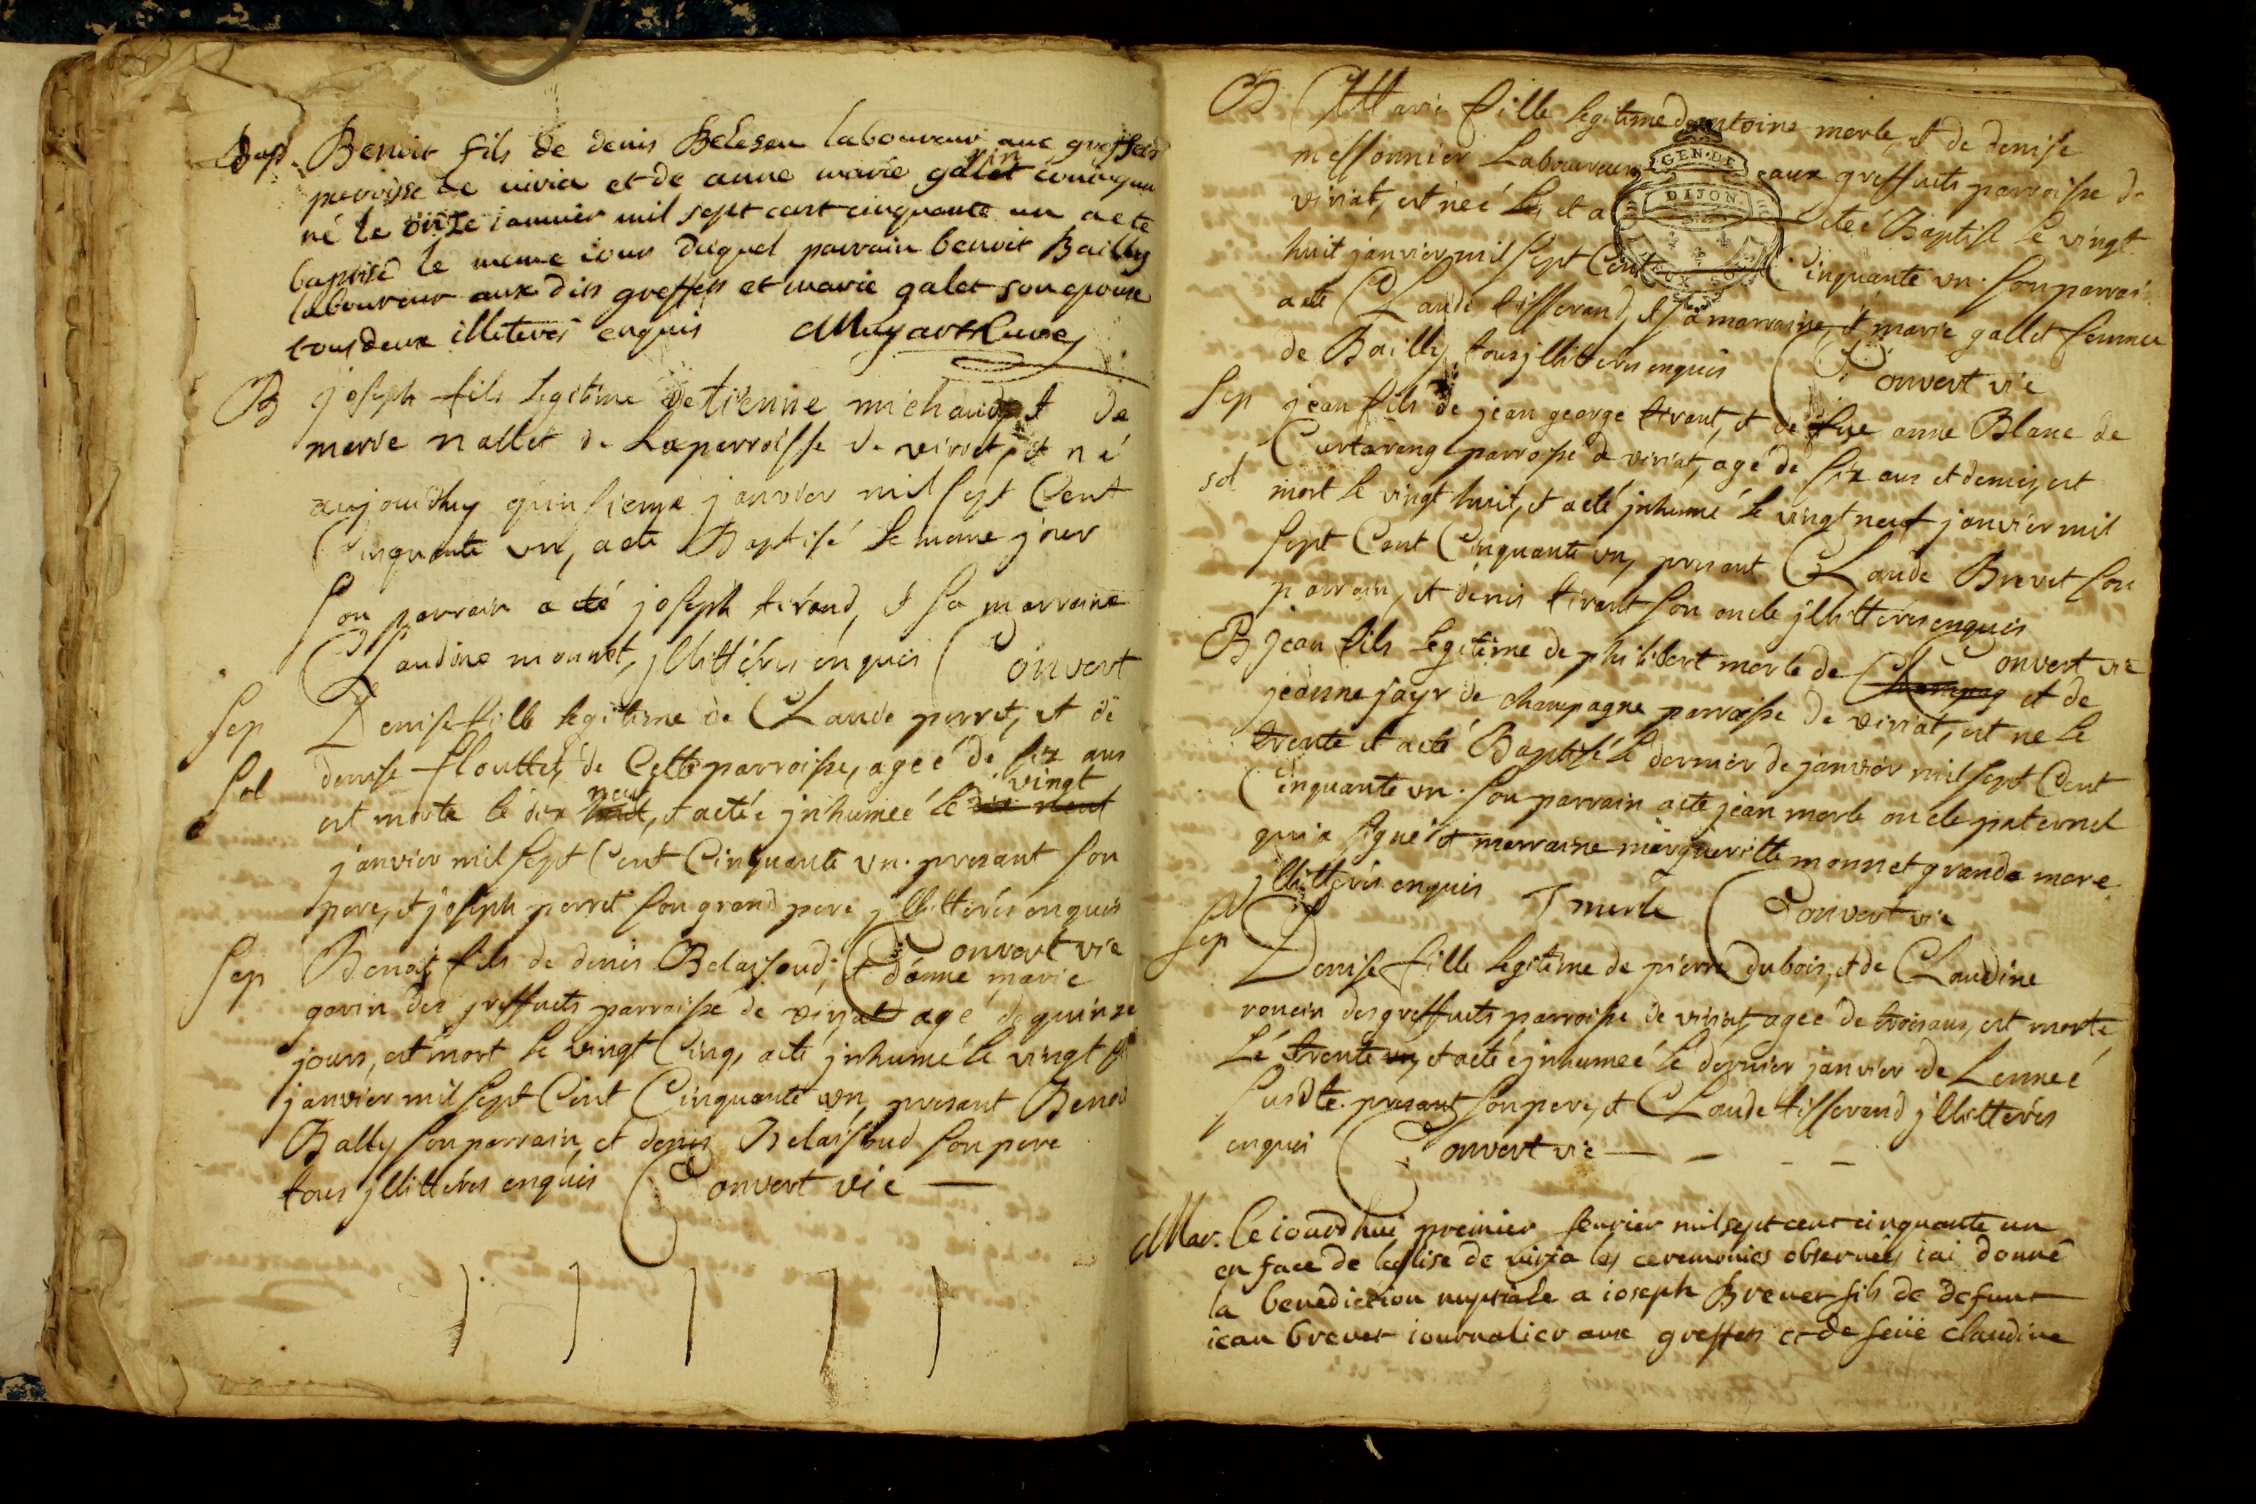 Bap. Benoit fils de denis Beleseu laboureur aux greffets
paroisse de viria et de anne marie gavin
né le onze ianvier mil sept cent cinquante un a ete
baptisé le meme iour duquel parrain benoit Bailly
laboureur aux dits greffets et marie galet son epouse
tous deux illeteres enquis Muyart Curé
B joseph fils legitime detienne michaud, et de
marie nallet de La parroisse de viriat, est né
aujourdhuy quinsieme janvier mil sept Cent
Cinquante un, a ete Baptisé le meme jour
son parrain a eté joseph tirand, et sa marraine
Claudine monnet, jllittérés enquis Convert
sep Denise fille legitime de Claude perret, et de
denise flouttet, de Cette parroisse, ageé de six ans
sol est morte le dix huit neuf, et a eté e jnhumeé le dix neuf vingt
janvier mil sept Cent Cinquante un. presant son
pere, et joseph perret son grand pere jllittérés enquis
Convert vic
sep Benoit fils de denis Belaisoud, et d'anne marie
gavin des greffuets parroisse de viriat agé de quinze
jours, est mort le vingt Cinq, a eté jnhumé le vingt six
janvier mil sept Cent Cinquante un, presant Benoit
Bally son parrain, et denis Belaisoud son pere
tous jllittérés enquis Convert vic
B Marie fille legitime dantoine merle, et de denise
messonnier Laboureurs aux greffuets parroisse de
viriat, est neé le, et a eteé Baptisé le vingt
huit janvier mil sept Cent Cinquante un. son parrain
a eté Claude tisserand, et sa marraine, et marie gallet femme
de Bailly tous jllittérés enquis Convert vic
sep jean fils de jean george tirant, et de fue anne Blanc de
Curtaringe parroisse de viriat, agé de six ans et demi, est
sol mort le vingt huit, et a eté jnhumé le vingt neuf janvier mil
sept Cent Cinquante un, presant Claude Brevet son
parrain, et denis tirant son oncle jllittérés enquis
Convert vic
B jean fils legitime de philibert merle de Champag et de
jeanne jayr de champagne parroisse de viriat, est ne le
trente et a eté Baptisé le dernier de janvier mil sept Cent
Cinquante un. son parrain a ete jean merle oncle paternel
qui a signé et marraine margueritte monnet grande mere
jllittérés enquis J merle Convert vic
sep Denise fille legitime de pierre dubois, et de Claudine
roncin des greffuets parroisse de viriat, ageé de trois ans, est morte
Lé trente un, et a eté é jnhumeé le dernier janvier de Lenneé
susdte. presant son pere, et Claude tisserand jllittérés
enquis Convert vic
Mar. le iourdhui preimier fevrier mil sept cent cinquante un
en face de leglise de viria les ceremonies observeés iai donné
la benediction nuptiale a ioseph Brevet fils de defunt
iean brevet iournalier aux greffets et de feüe claudine
GEN. DE
DIJON.